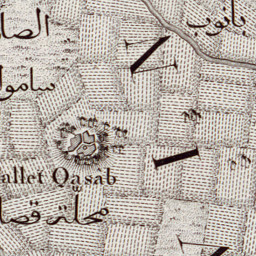 الصا
بانوب
سامو
allet Qasab
محلّة قصا